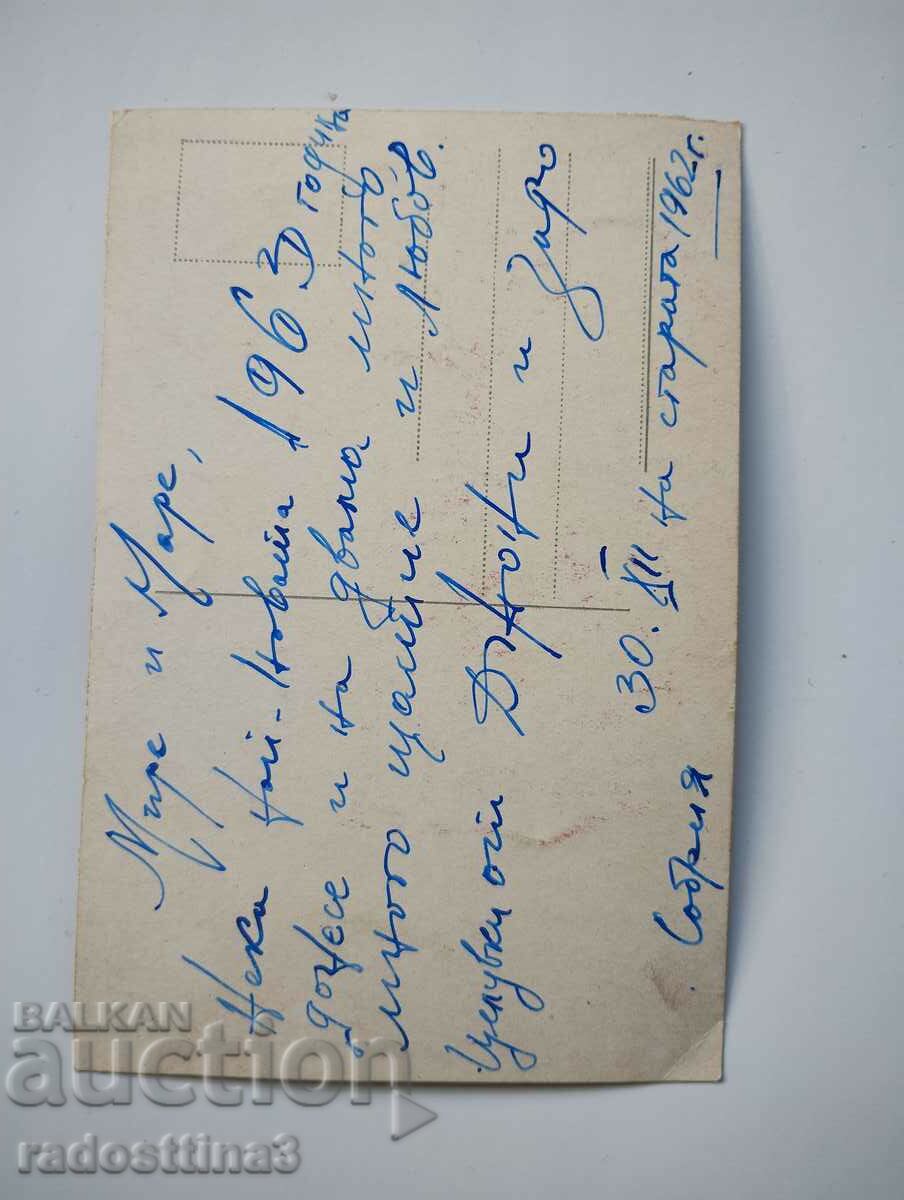 Мире и Маре,
Нека най-новата 1963 годинка
донесе и на двама много
много щастие и любов.
Целувки от Джони и
30.XII на старата 1962 г.
София
BALKAN
auction
radosttina3